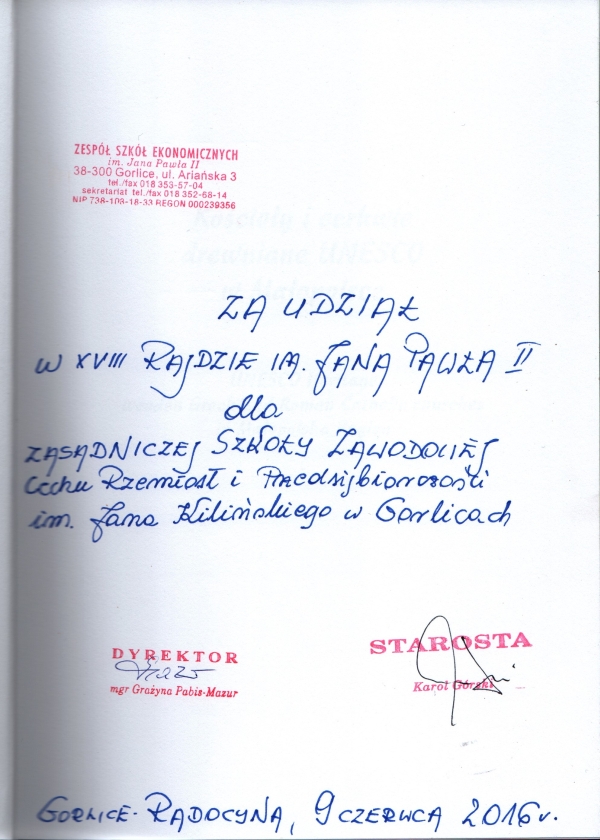 ZESPÓŁ SZKÓŁ EKONOMICZNYCH
im. Jana Pawła II
38-300 Gorlice, ul. Ariańska 3
tel./fax 018 353-57-04
sekretariat tel./fax 018 352-68-14
NIP 738-109-18-33 REGON 000239356
ZA UDZIAŁ
W XVIII RAJDZIE IM. JANA PAWŁA II
dla
ZASADNICZEJ SZKOŁY ZAWODOWEJ
Cechu Rzemiosł i Przedsiębiorczości
im. Jana Kilińskiego w Gorlicach
DYREKTOR
mgr Grażyna Pabis-Mazur
STAROSTA
Karol Górski
GORLICE-RADOCYNA, 9 CZERWCA 2016r.